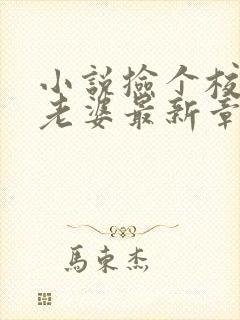 小説撿个校
老婆最新章
馬東杰